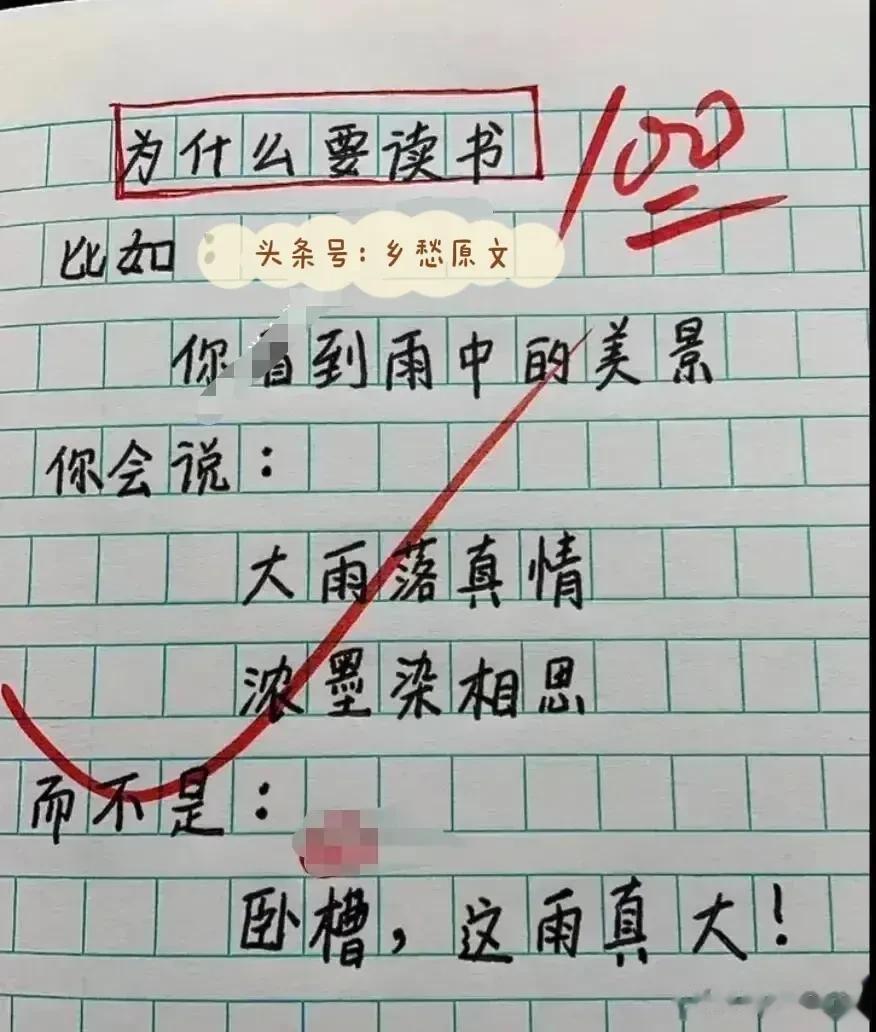 为什么要读书
100
比如：
头条号：乡愁原文
你看到雨中的美景
你会说：
大雨落真情
浓墨染相思
而不是：
卧槽，这雨真大！